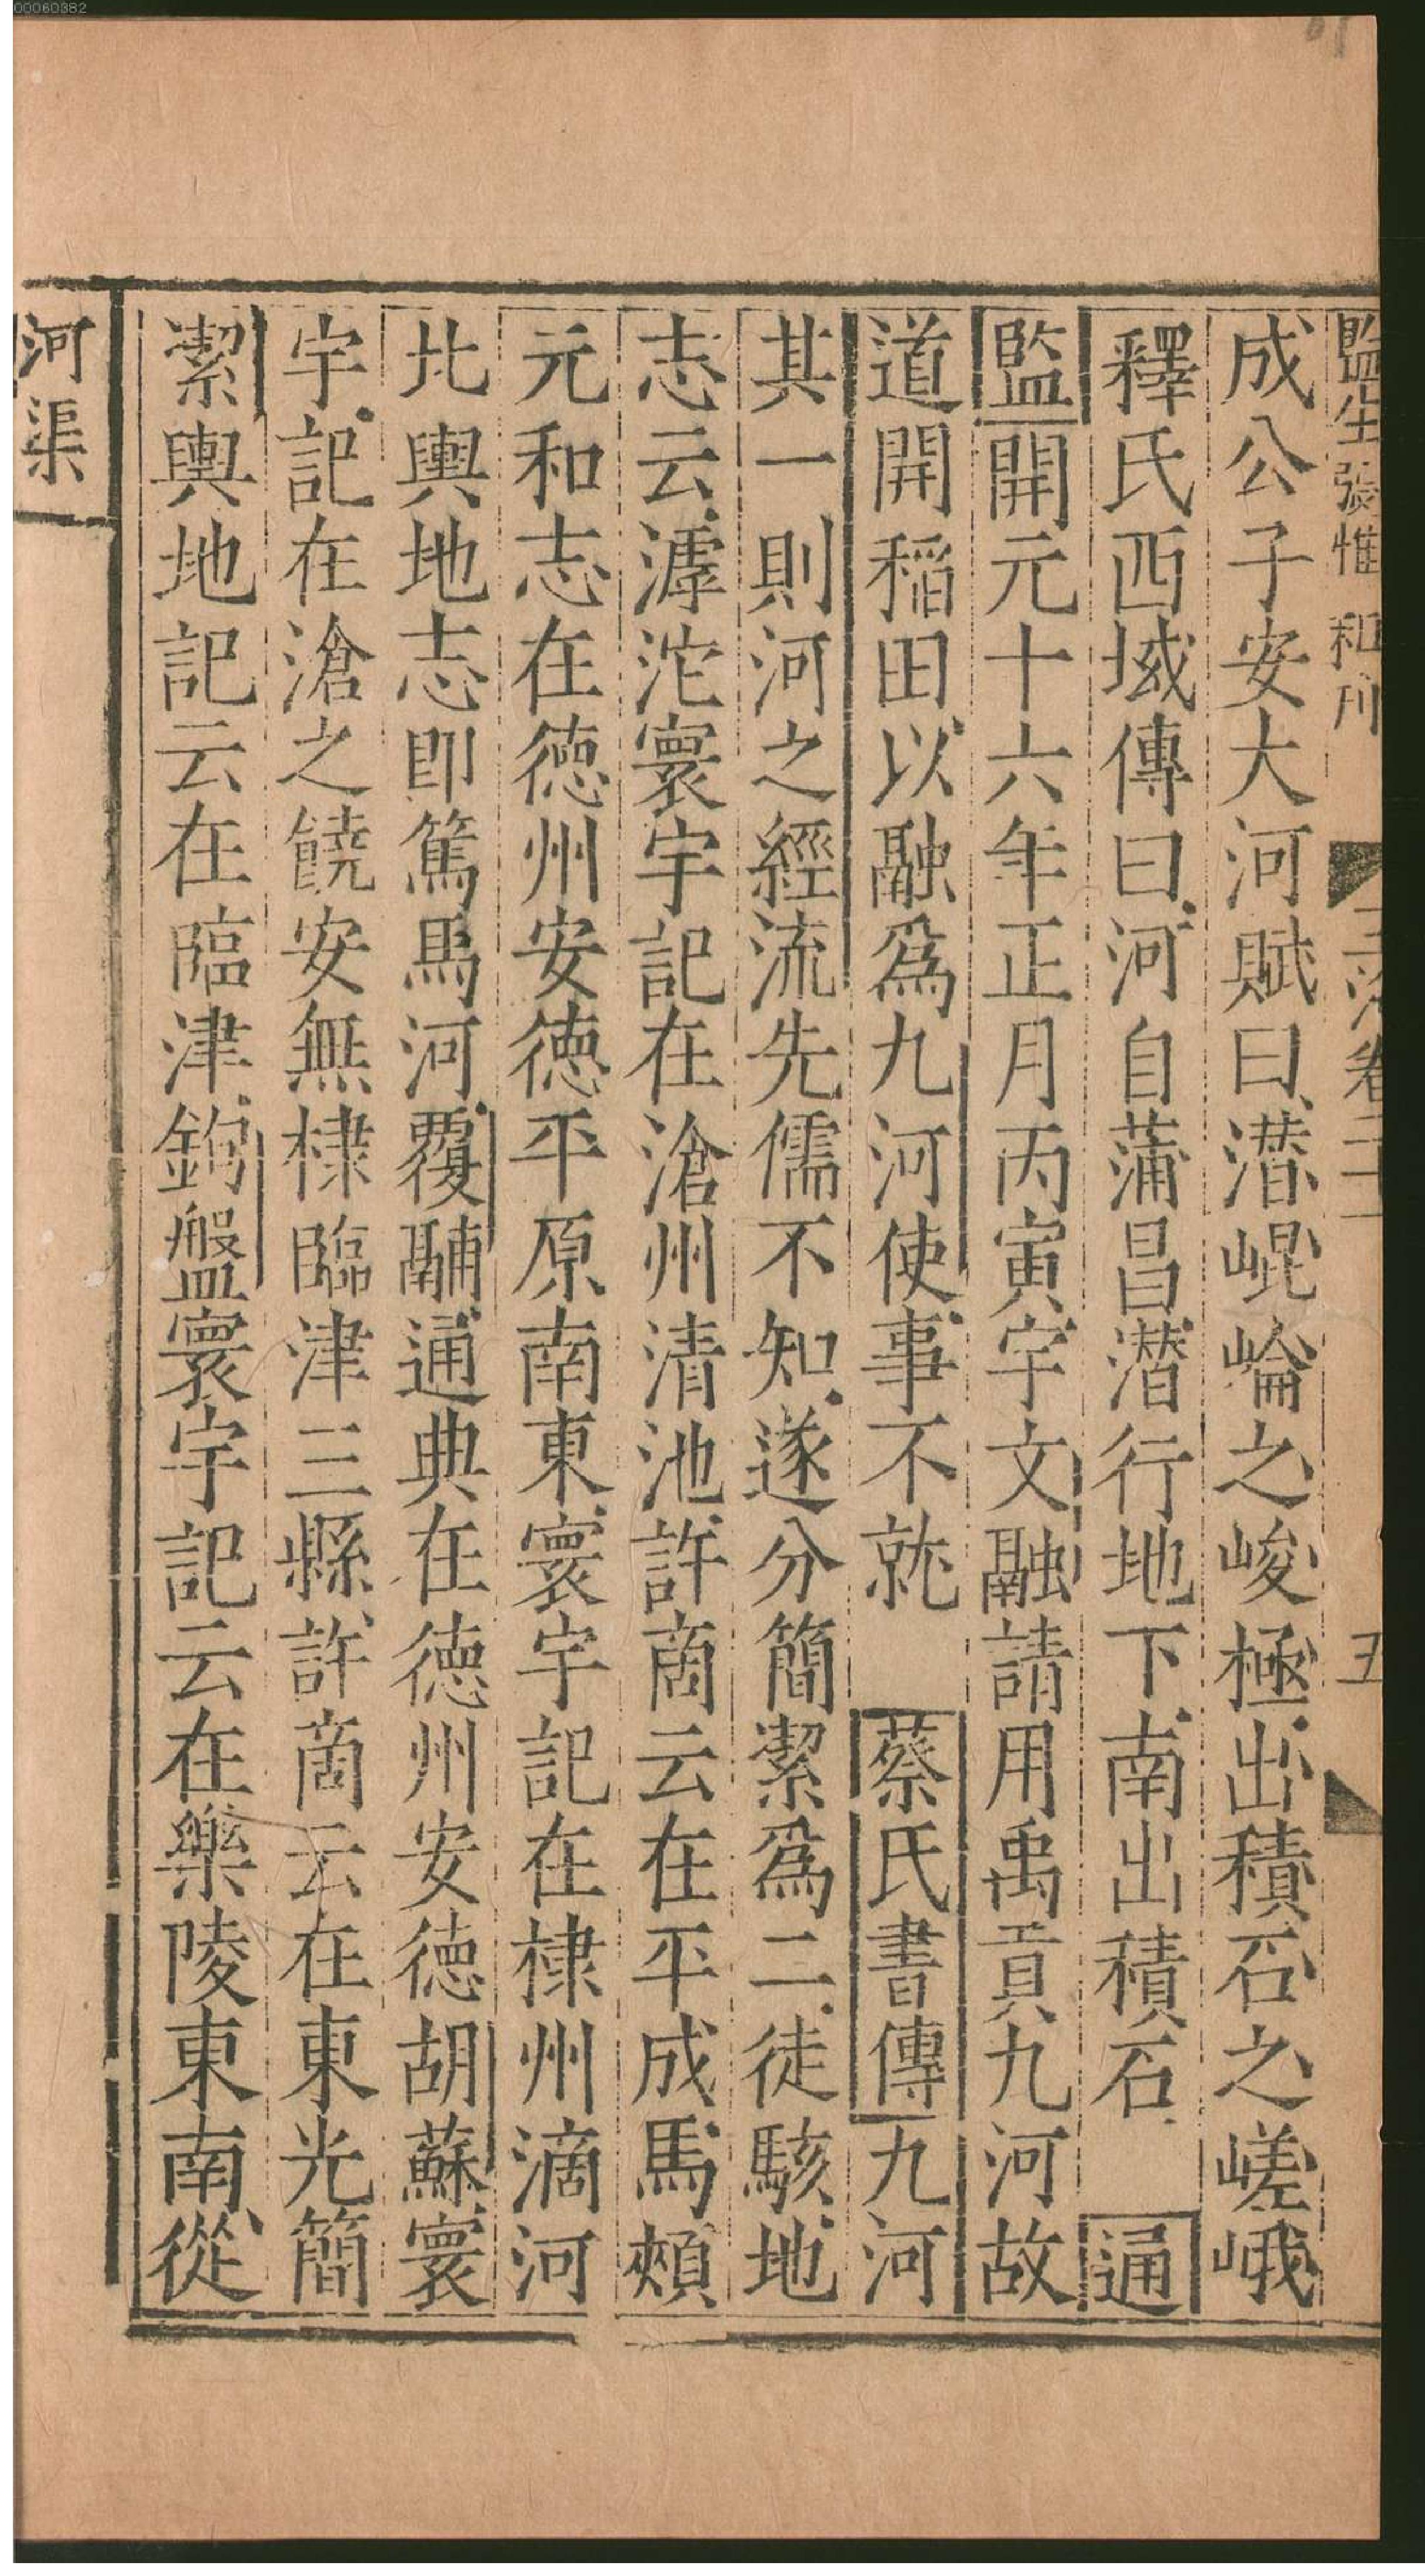 00060382
監生張惟和刊
玉海卷二十一
五
成公子安大河賦曰潛崐崘之峻極出積石之嵯峨
釋氏西域傳曰河自蒲昌潛行地下南出積石 通
監開元十六年正月丙寅宇文融請用禹貢九河故
道開稻田以融爲九河使事不就 蔡氏書傳九河
其一則河之經流先儒不知遂分簡潔爲二徒駭地
志云滹沱寰宇記在滄州清池許商云在平成馬頰
元和志在德州安德平原南東寰宇記在棣州滴河
北輿地志即篤馬河覆鬴通典在德州安德胡蘇寰
宇記在滄之饒安無棣臨津三縣許商云在東光簡
潔輿地記云在臨津鉤盤寰宇記云在樂陵東南從
河渠